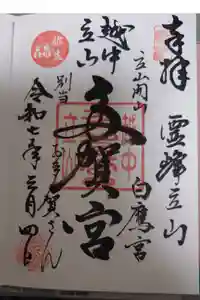 奉拝
霊峰立山
立山開山
白鷹宮
越中
立山
多賀宮
別当
お多賀さん
令和七年三月四日